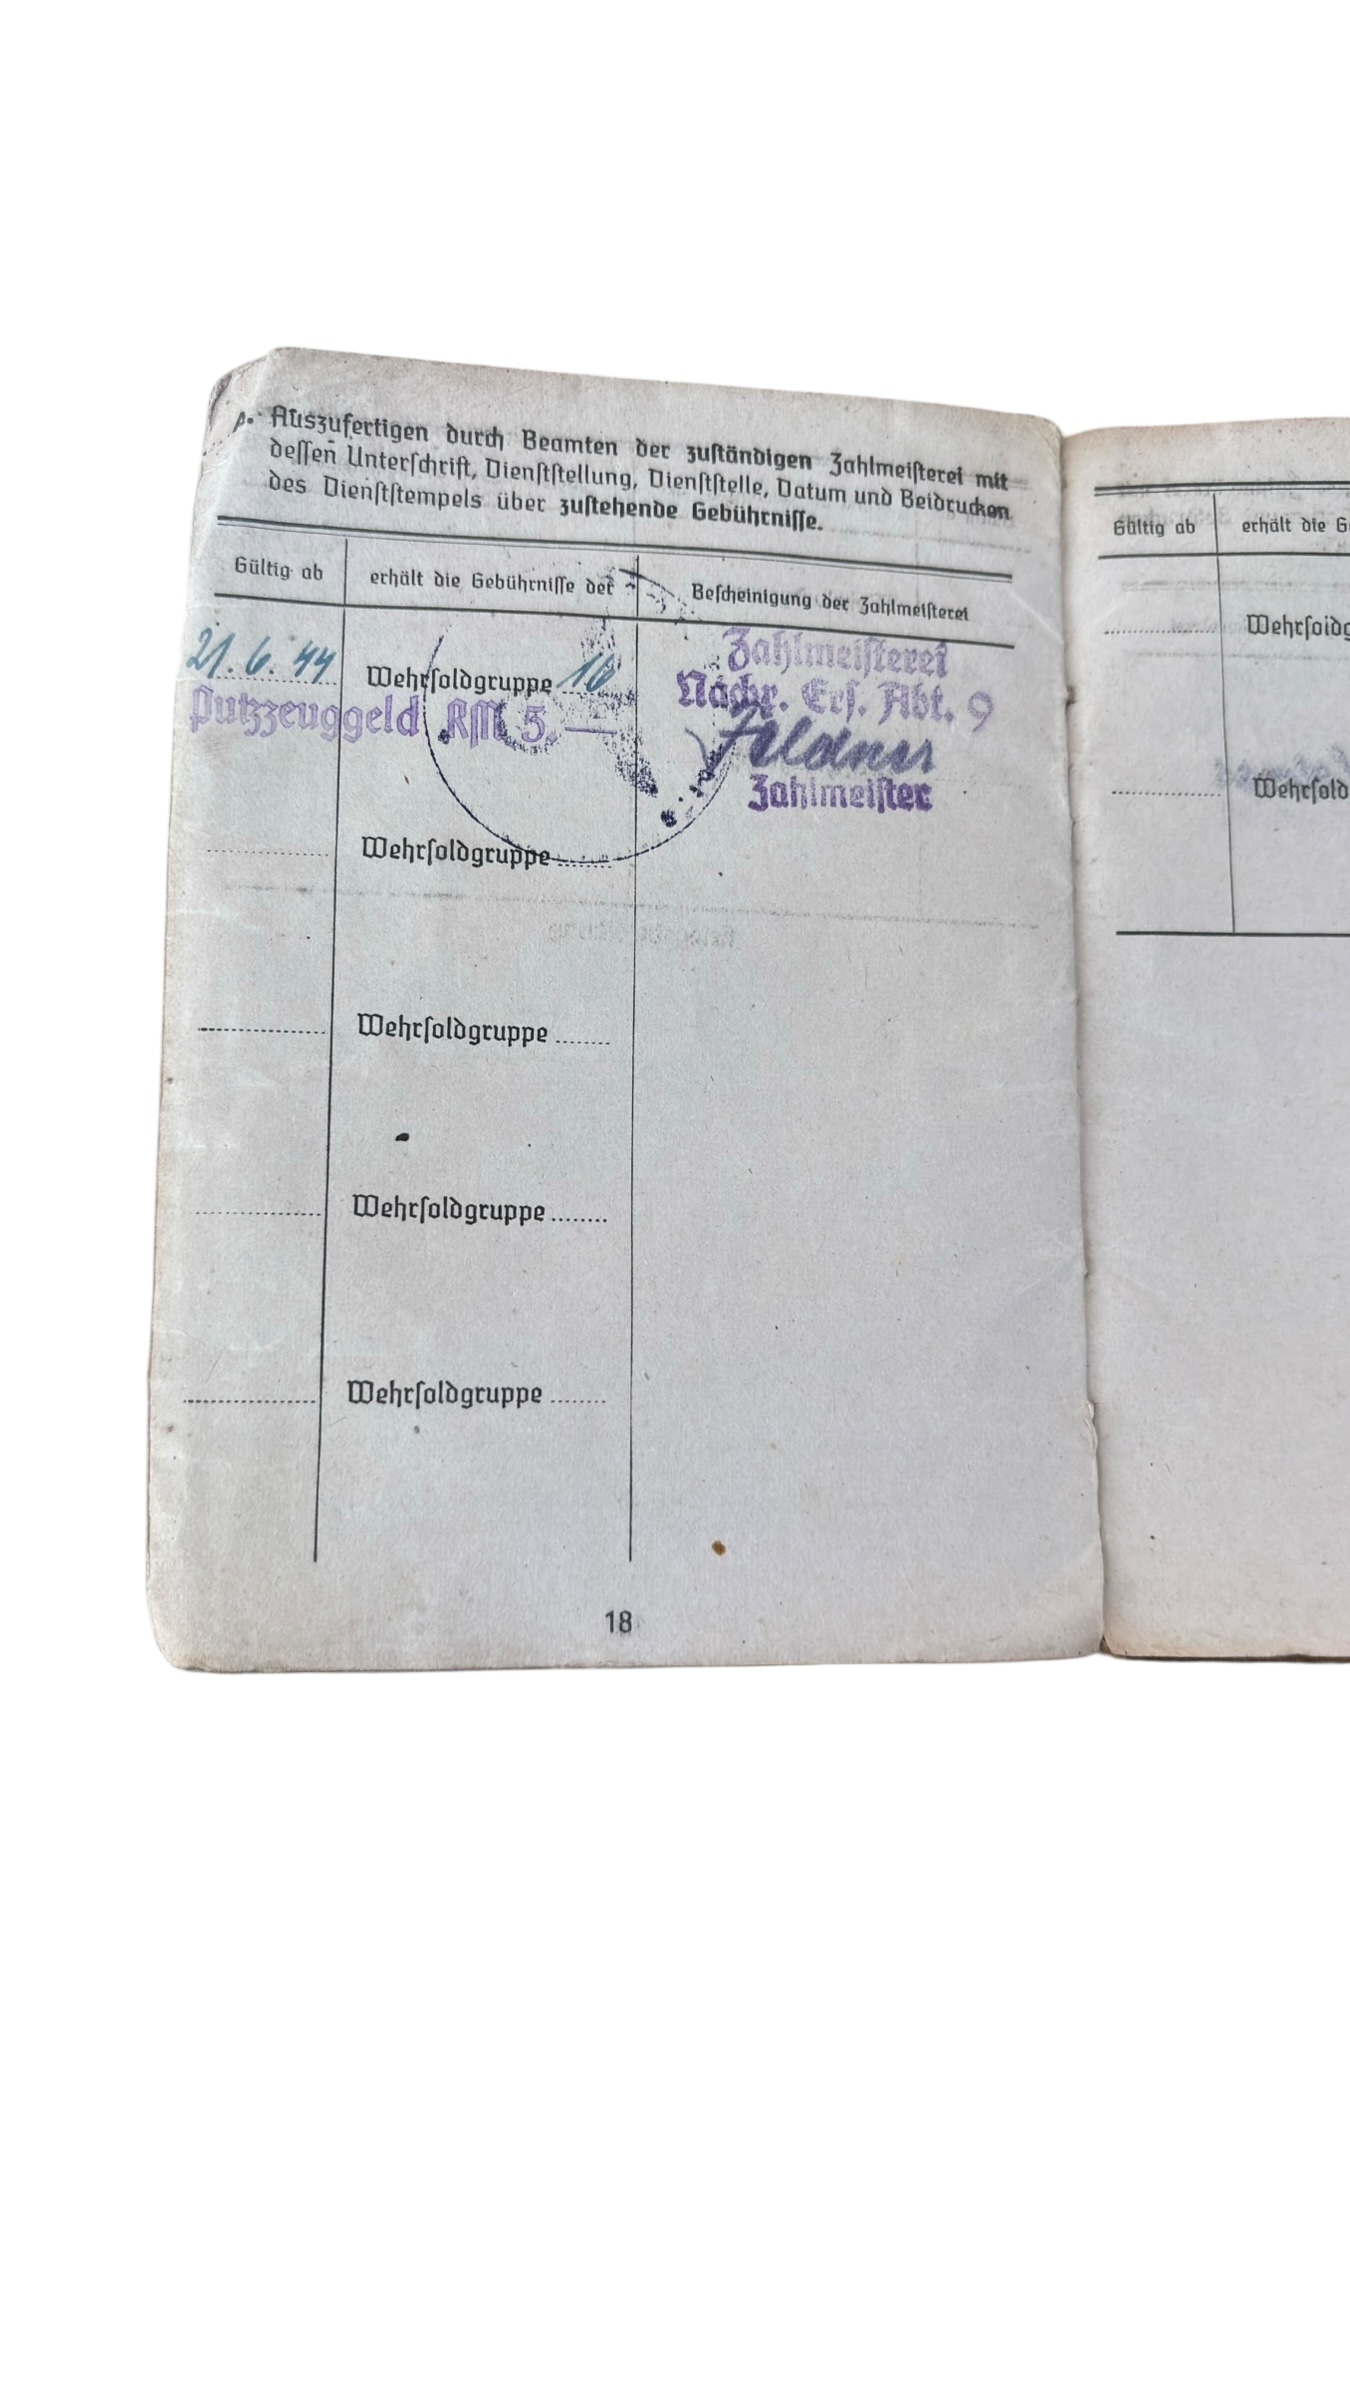 Auszufertigen durch Beamten der zuständigen Zahlmeisterei mit
dessen Unterschrift, Dienststellung, Dienststelle, Datum und Beidrucken
des Dienststempels über zustehende Gebührnisse.
Gültig ab erhält die Gebührnisse der Bescheinigung der Zahlmeisterei
21.6.44 Wehrsoldgruppe 16 Zahlmeisterei
Nachr. Ers. Abt. 9
Putzzeuggeld RM 5.—
Zahlmeister
Wehrsoldgruppe
Wehrsoldgruppe
Wehrsoldgruppe
Wehrsoldgruppe
18
Gültig ab erhält die G
Wehrsoldg
Wehrsold